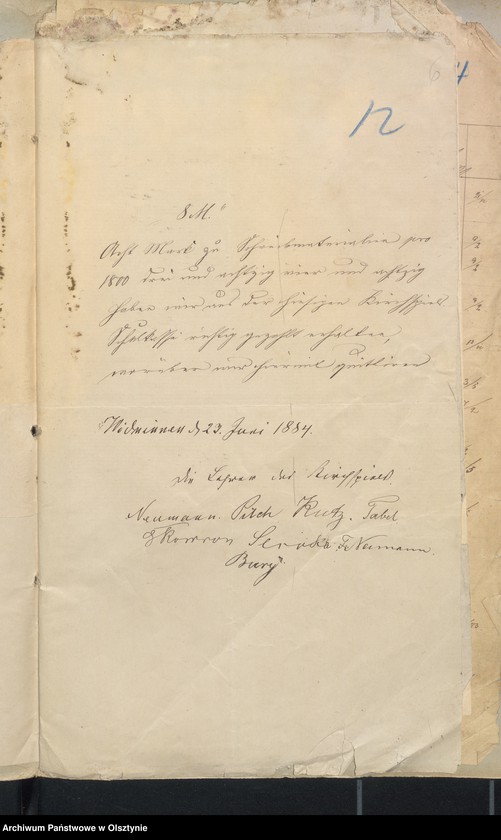 6
12
8 M
Acht Mark zu Schreibmaterialien pro
1800 drei und achtzig vier und achtzig
haben wir aus der hiesigen Kirchspiels
Schulkasse richtig gezahlt erhalten,
worüber wir hiermit quittiren
Widminnen d 23. Juni 1884.
Die Lehrer des Kirchspiels
Neumann. Pilch Kutz. Tabel
Skowron F. Neumann.
Bury.
Archiwum Państwowe w Olsztynie